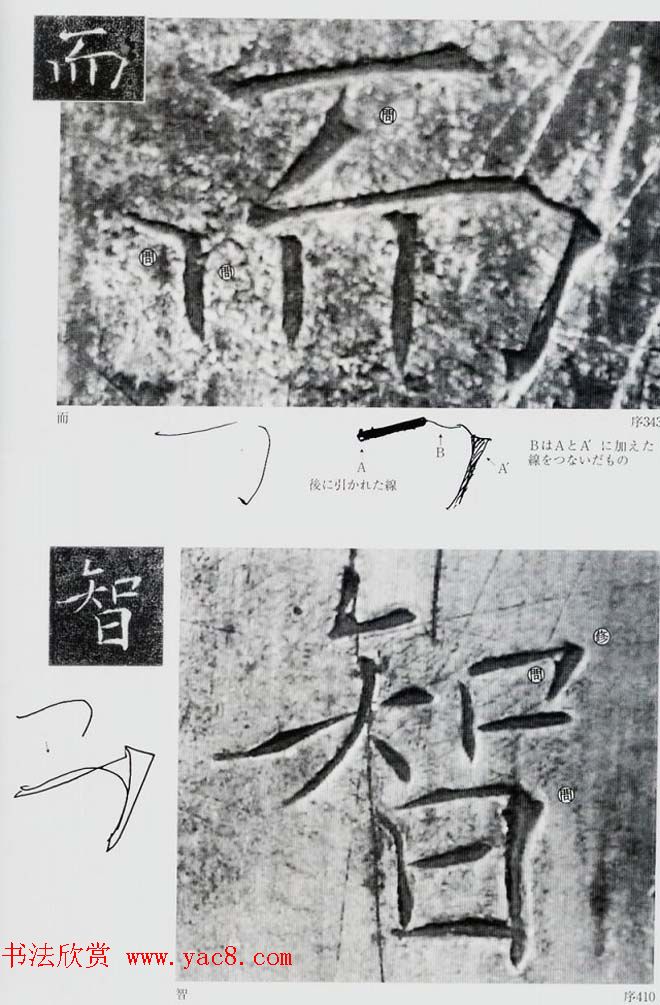 而
問
問
問
而
序343
A
後に引かれた線
B
A′
BはAとA′に加えた
線をつないだもの
智
修
問
問
智
序410
书法欣赏 www.yac8.com